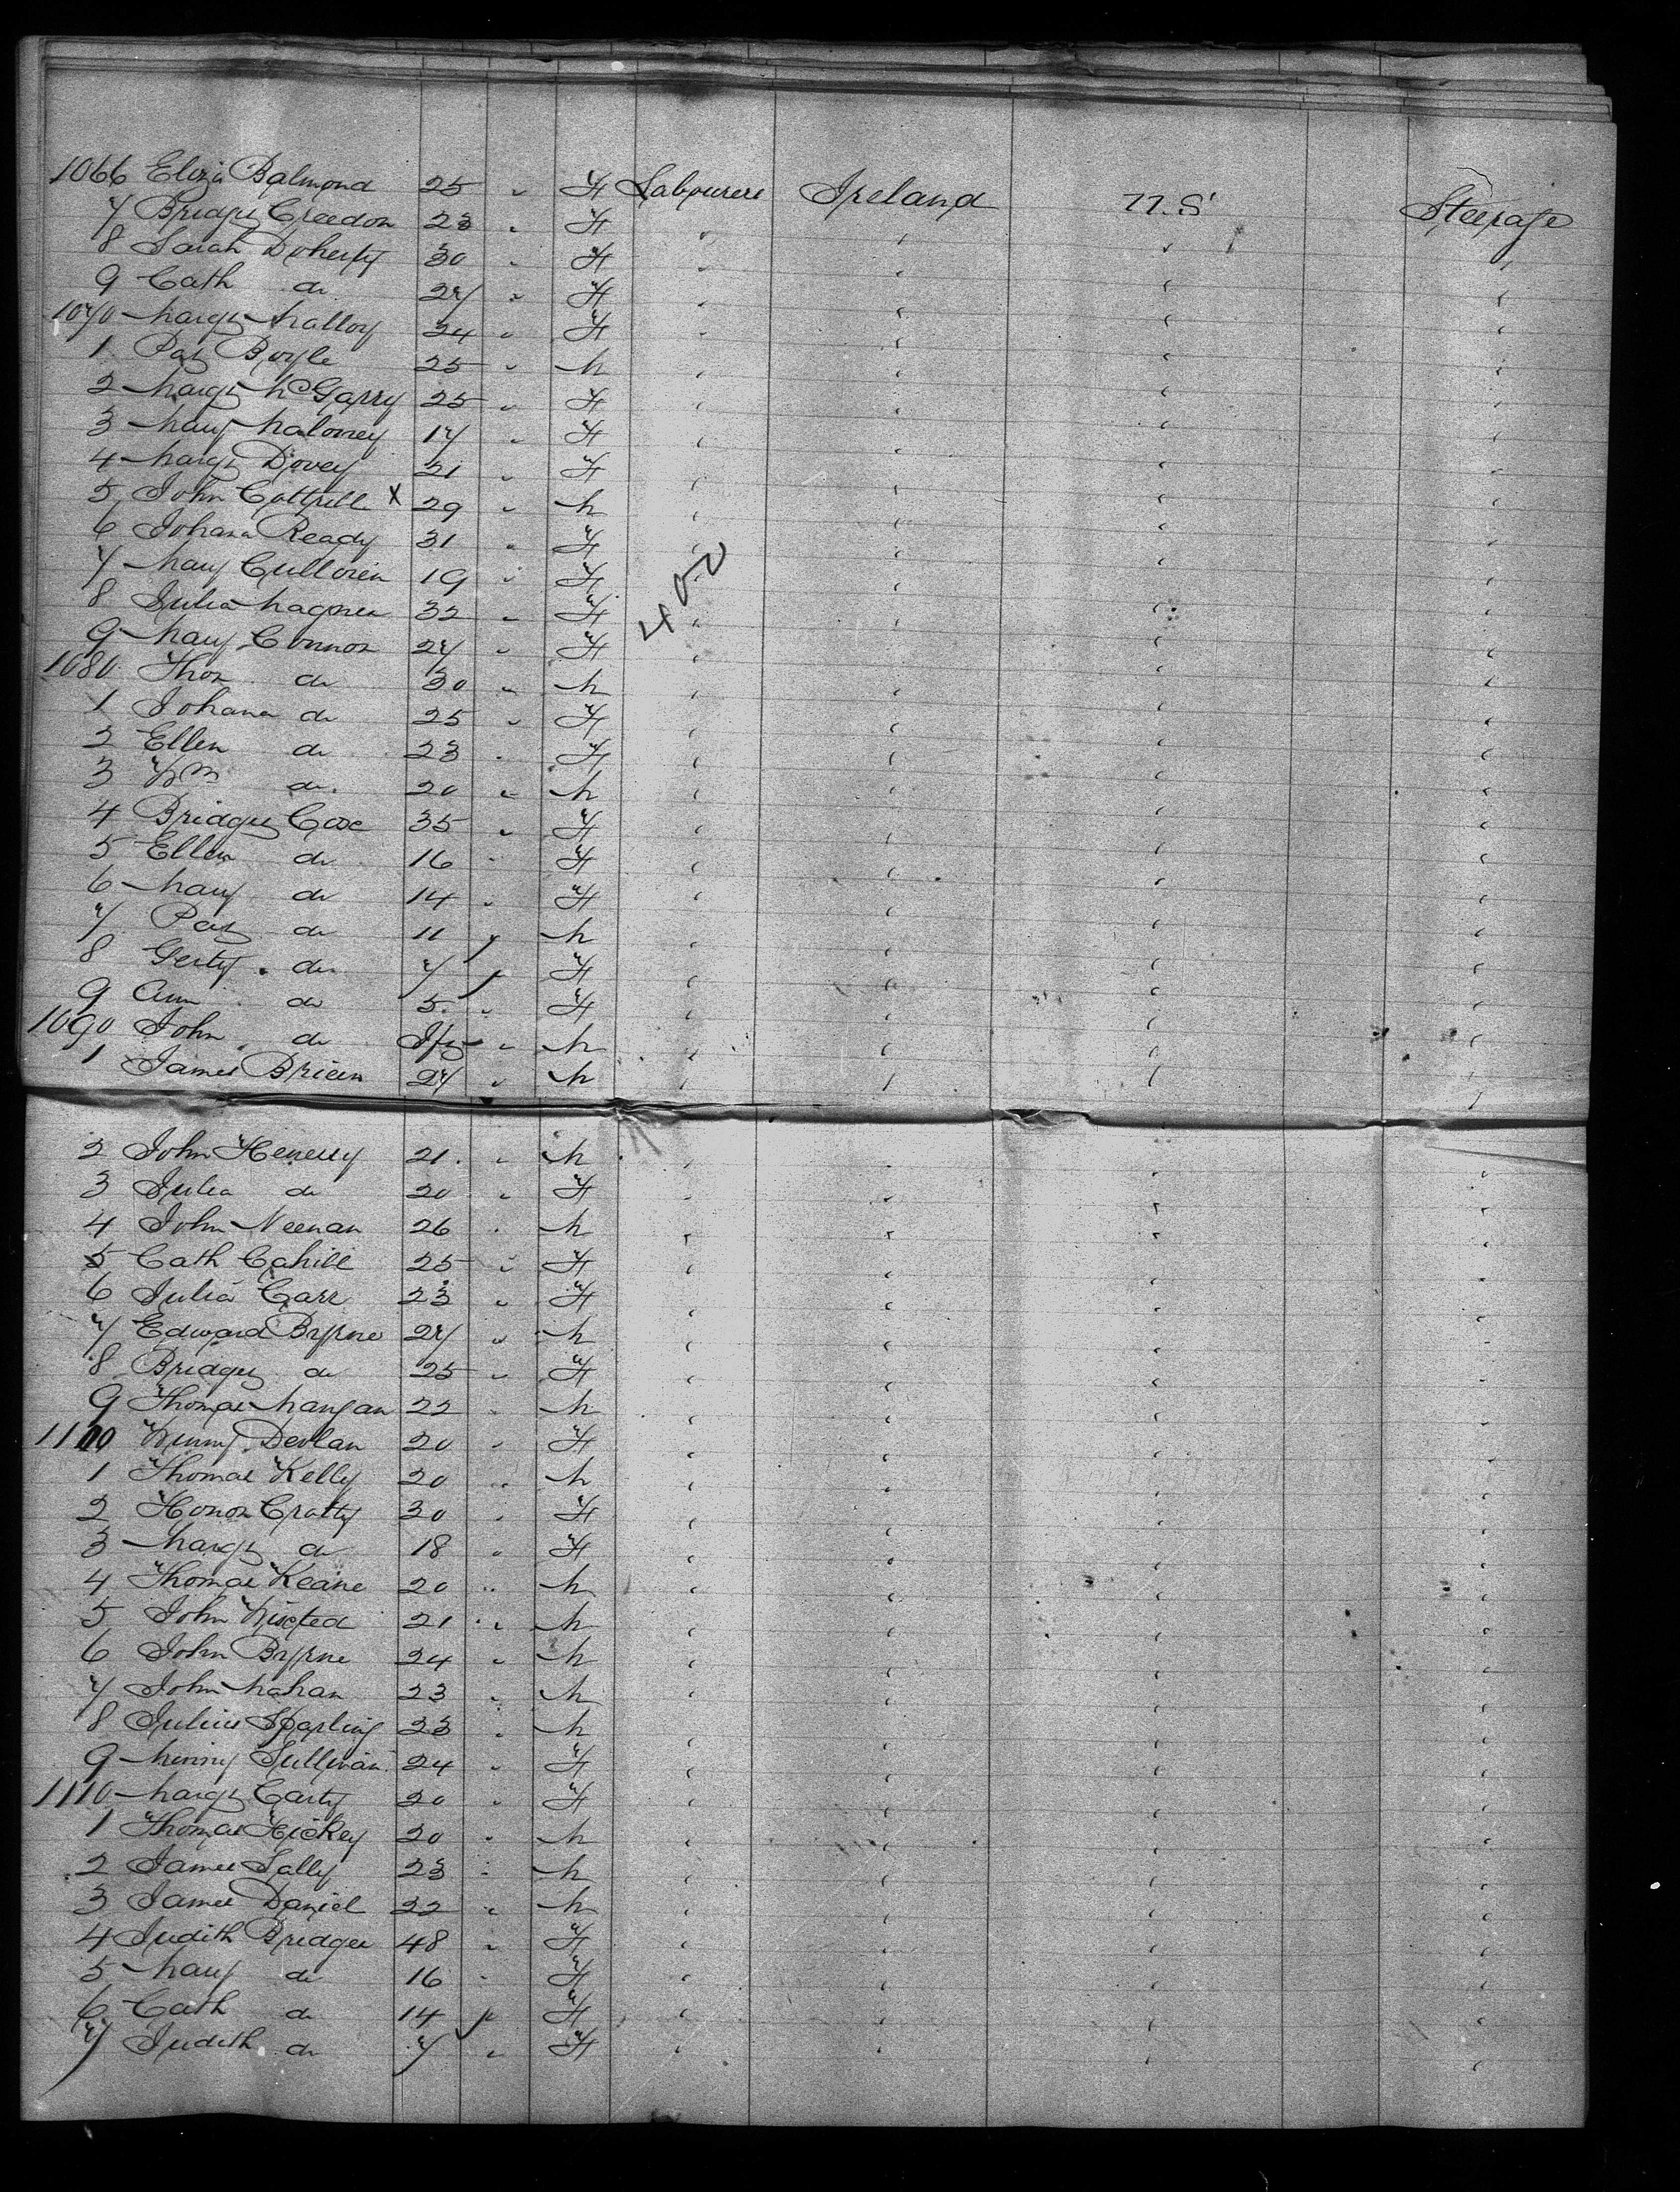 1066 Eliza Balmond 25 " F Labourers Ireland U.S. Steerage
7 Bridget Creedon 23 " F " " " "
8 Sarah Doherty 30 " F " " " "
9 Cath do 27 " F " " " "
1070 Margt Malloy 24 " F " " " "
1 Pat Boyle 25 " M " " " "
2 Margt McGarry 25 " F " " " "
3 Mary Maloney 17 " F " " " "
4 Margt Dovey 21 " F " " " "
5 John Cottrell X 29 " M " " " "
6 Johana Ready 31 " F " " " "
7 Mary 19 " F " " " "
8 Julia Magner 32 " F 400 " " " "
9 Mary Connor 27 " F " " " "
1080 Thos do 30 " M " " " "
1 Johana do 25 " F " " " "
2 Ellen do 23 " F " " " "
3 Wm do 20 " M " " " "
4 Bridget Coxe 35 " F " " " "
5 Ellen do 16 " F " " " "
6 Mary do 14 " F " " " "
7 Pat do 11 M " " " "
8 Gerty do 7 F " " " "
9 Ann do 5 " F " " " "
1090 John do Inft " M " " " "
1 James Brien 27 " M " " " "
2 John Henessy 21 " M " " " "
3 Julia do 20 " F " " " "
4 John Neenan 26 " M " " " "
5 Cath Cahill 25 " F " " " "
6 Julia Carr 23 " F " " " "
7 Edward Byrne 27 " M " " " "
8 Bridget do 25 " F " " " "
9 Thomas Mangan 22 " M " " " "
1100 Winny Devlan 20 " F " " " "
1 Thomas Kelly 20 " M " " " "
2 Honor Cratty 30 " F " " " "
3 Margt do 18 " F " " " "
4 Thomas Keane 20 " M " " " "
5 John 21 " M " " " "
6 John Byrne 24 " M " " " "
7 John Mahan 23 " M " " " "
8 Julius Sparling 23 " M " " " "
9 Minny Sullivan 24 " F " " " "
1110 Margt Carty 20 " F " " " "
1 Thomas Hickey 20 " M " " " "
2 James Lally 23 " M " " " "
3 James Daniel 22 " M " " " "
4 Judith Bridges 48 " F " " " "
5 Mary do 16 " F " " " "
6 Cath do 14 F " " " "
7 Judith do 7 " F " " " "